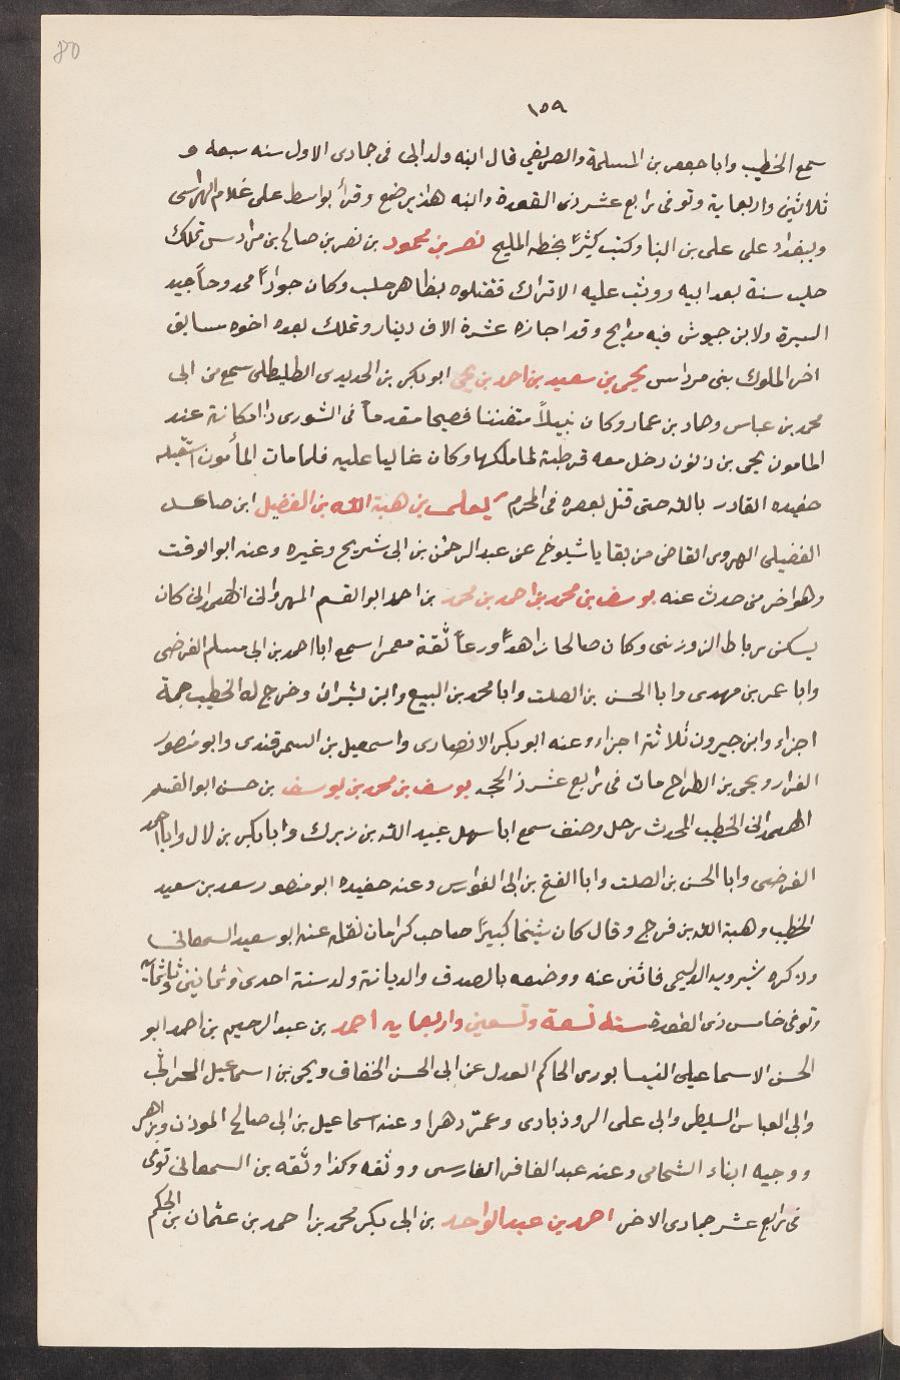 80
١٥٩
سمع الخطيب وابا جعفر بن المسلمة والصريفي قال ابنه ولد ابى فى جمادى الاول سنه سبعه و
ثلاثين واربعماية وتوفى رابع عشر ذى القعدة وابنه هذا يرضع وقرأ بواسط على غلام الهراسى
وببغداد على على بن البنا وكتب كثيرًا بخطه المليح نصر بن محمود بن نصر بن صالح بن مرادس تملك
حلب سنة بعد ابيه ووثب عليه الاتراك فقتلوه بظاهر حلب وكان جوادًا ممدوحاً جيد
السيرة ولابن جيوش فيه مدايح وقد اجازه عشرة الاف دينار وتملك بعده اخوه سابق
اخر الملوك بنى مرداس يحيى بن سعيد بن احمد بن يحيى ابو بكر بن الحديدى الطليطلى سمع من ابى
محمد بن عباس وحماد بن عمار وكان نبيلاً متفننا فصيحا مقدماً فى الشورى ذا مكانة عند
المامون يحيى بن ذنون دخل معه قرطبة لما ملكها وكان غالبا عليه فلما مات المأمون استقبله
حفيده القادر بالله حتى قتل بقصره فى المحرم يعلى بن هبة الله بن الفضيل ابن صاعد
الفضيلى الهروى القاضى من بقايا شيوخ عن عبد الرحمن بن ابى شريح وغيره وعنه ابو الوقت
وهو اخر من حدث عنه يوسف بن محمد بن احمد بن محمد بن احمد ابو القسم المهروانى الهمدانى كان
يسكن برباط الزوزنى وكان صالحا زاهدًا ورعاً ثقة معمرا سمع ابا احمد بن ابى مسلم الفرضى
وابا عمر بن مهدى وابا الحسن بن الصلت وابا محمد بن البيع وابن بشران وخرج له الخطيب خمسة
اجزاء وابن جيرون ثلاثة اجزاء وعنه ابو بكر الانصارى واسمعيل بن السمرقندى وابو منصور
القزاز ويحيى بن الطراح مات فى رابع عشر ذ الحجه يوسف بن محمد بن يوسف بن حسن ابو القسم
الهمدانى الخطيب المحدث رحل وصنف سمع ابا سهل عبيد الله بن زيرك وابا بكر بن لال وابا احمد
الفرضى وابا الحسن بن الصلت وابا الفتح بن ابى الفوارس وعنه حفيده ابو منصور سعد بن سعيد
الخطيب وهبة الله بن فرج وقال كان شيخا كبيرًا صاحب كرامات نقله عنه ابو سعيد السمعانى
وذكره شيرويه الديلمى فاثنى عنه ووصفه بالصدق والديانة ولد سنة احدى وثمانين وثلثمائه
وتوفى خامس ذى القعدة سنة تسعة وتسعين واربعمايه احمد بن عبد الرحيم بن احمد ابو
الحسن الاسماعيلى النيسابورى الحاكم العدل عن ابى الحسن الخفاف ويحيى بن اسماعيل الحرابى
وابى العباس السليطى وابى على الروذبادى وعمّر دهرا وعنه اسماعيل بن ابى صالح الموذن وزاهر
ووجيه ابناء الشحامى وعنه عبد الغافر الفارسى ووثقه وكذا وثقه بن السمعانى توفى
فى رابع عشر جمادى الاخر احمد بن عبد الواحد بن ابى بكر محمد بن احمد بن عثمان بن الحكم